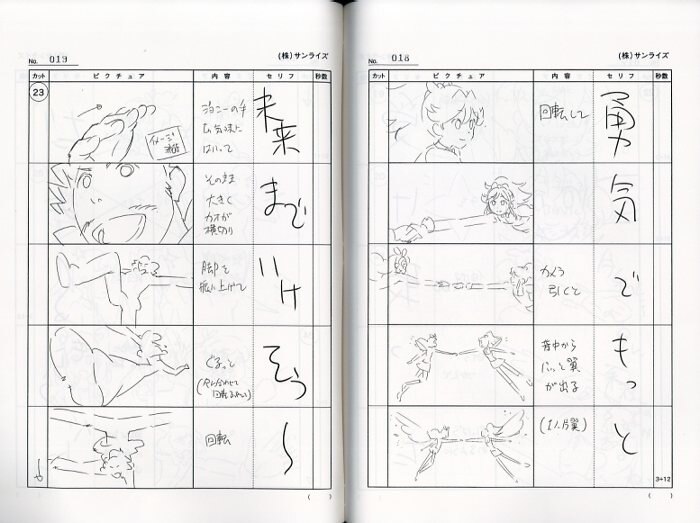 No. 019
(株)サンライズ
カット ピクチュア 内容 セリフ 秒数
23
イメージ
ジョニーの手
広角気味に
はいって
未来
そのまま
大きく
カオが
横切り
まで
脚を
振り上げて
いけ
ぐるっと
回転
〜
( )
No. 018
(株)サンライズ
カット ピクチュア 内容 セリフ 秒数
回転して
勇
気
カメラ
引くと
で
背中から
にゅっと翼
が出る
もっ
(1人片翼)
と
3+12
( )